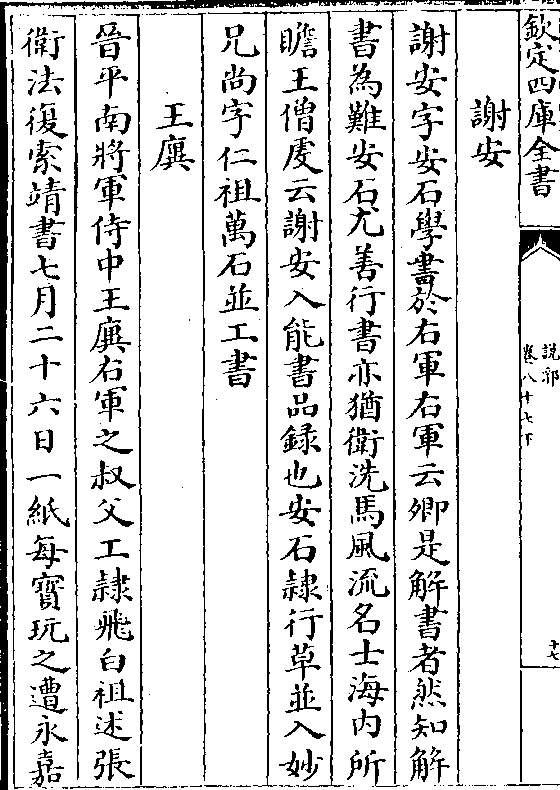 欽定四庫全書
說郛
卷八十七下
十七
謝安
謝安字安石學書於右軍右軍云卿是解書者然知解
書為難安石尤善行書亦猶衛洗馬風流名士海内所
瞻王僧虔云謝安入能書品録也安石隷行草並入妙
兄尚字仁祖萬石並工書
王廙
晉平南將軍侍中王廙右軍之叔父工隷飛白祖述張
衛法復索靖書七月二十六日一紙每寳玩之遭永嘉